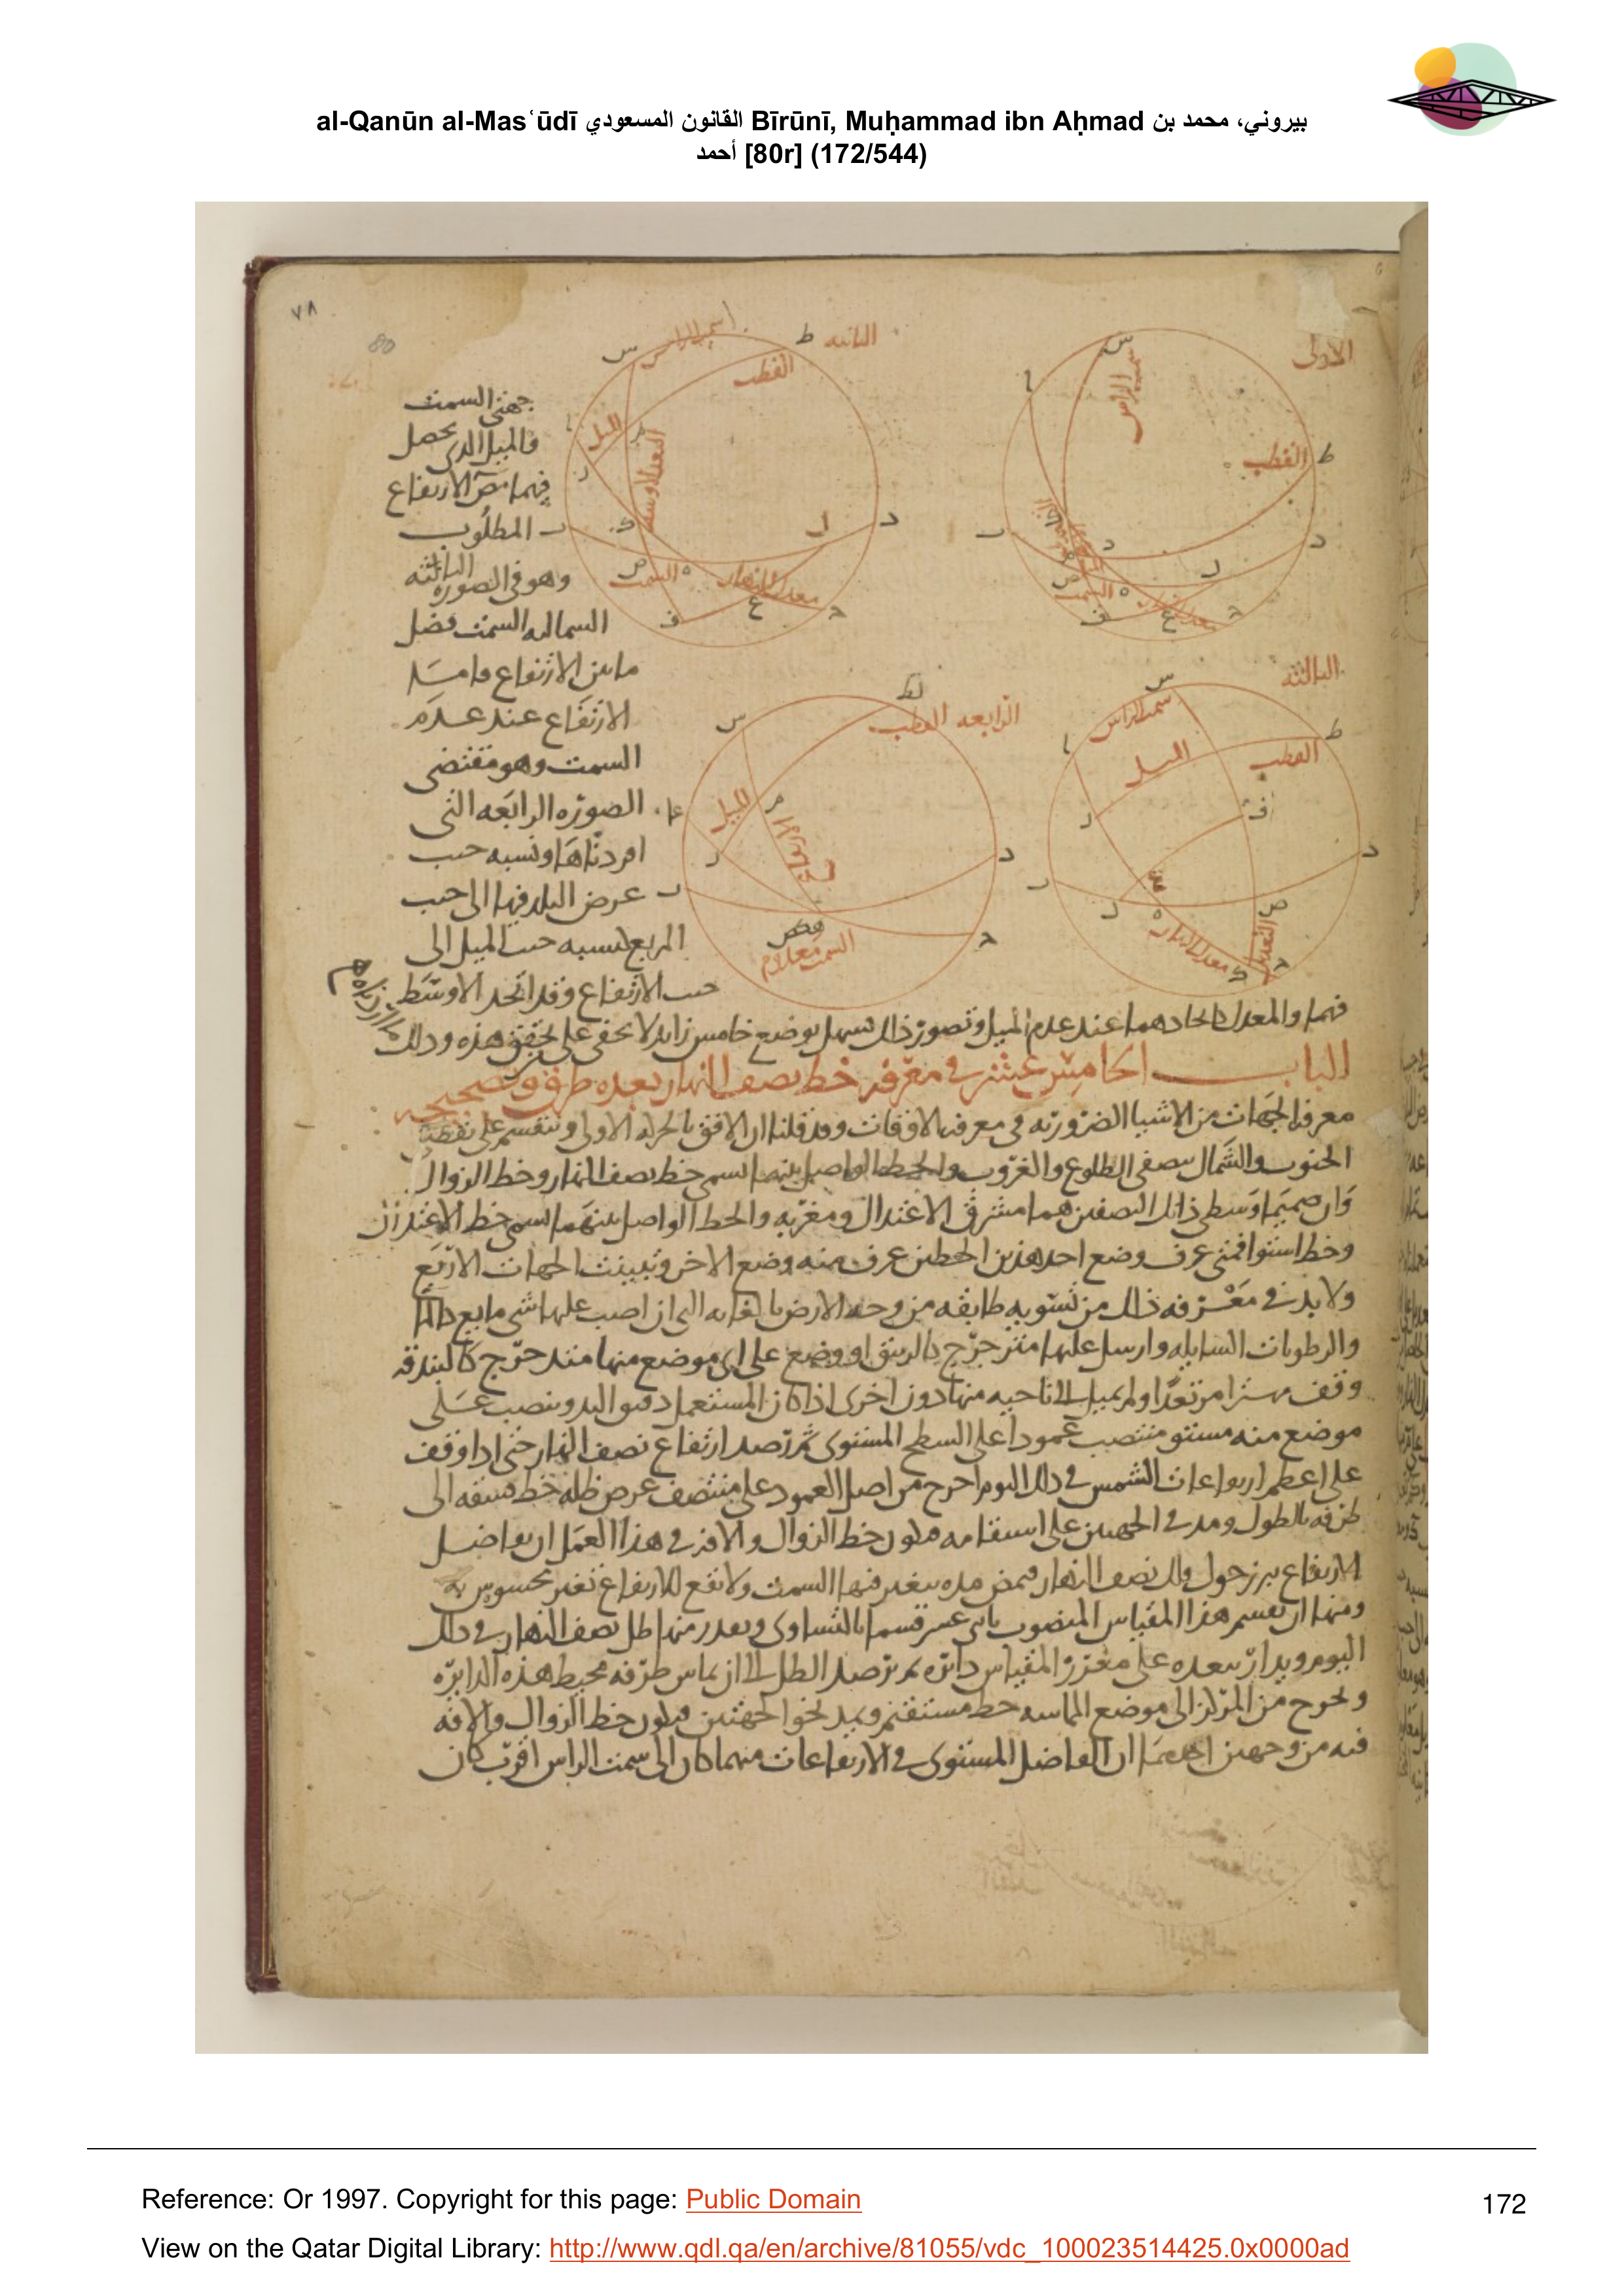 al-Qanūn al-Masʿūdī القانون المسعودي Bīrūnī, Muḥammad ibn Aḥmad بيروني، محمد بن
أحمد [80r] (172/544)
٧٨
80
الاولى
س
سمت الراس
ا
ط
القطب
د
ل
ف
ع
الثانيه
ط
س
القطب
الميل
معدل النهار
السمت
د
ل
ف
ع
الثالثه
س
سمت الراس
ط
القطب
الميل
د
ص
معدل النهار
الرابعه القطب
ط
س
الميل
د
جهتى السمت
فالميل الذى يحصل
الارتفاع
المطلوب
وهو فى الصوره الثالثه
الشماليه السمت فضل
مابين الارتفاع وما
الارتفاع عند عدم
السمت وهو مقتضى
الصوره الرابعه التى
افردناها ونسبه جيب
عرض البلد فيها الى جيب
الربع كنسبه جيب الميل الى
جيب الارتفاع وقد اتحد الاوسط
فيها والمعدل لاتحادهما عند عدم الميل وتصور ذلك سهل بوضع خامس زايد لا يخفى على محقق هذه وذلك
الباب الخامس عشر فى معرفه خط نصف النهار بعده طرق وتصحيحه
معرفه الجهات من الاشيا الضروريه فى معرفه الاوقات وقد قلنا ان الافق بالحركه الاولى وتنقسم على نقطتى
الجنوب والشمال بنصفى الطلوع والغروب والخط الواصل بينهما يسمى خط نصف النهار وخط الزوال
وان صميما وسطى ذانك النصفين هما مشرق الاعتدال ومغربه والخط الواصل بينهما يسمى خط الاعتدال
وخط استوا فمتى عرف وضع احد هذين الخطين عرف منه وضع الاخر وتبينت الجهات الاربع
ولا بد فى معرفه ذلك من تسويه طايفه من وجه الارض بالغايه التى ان اصب عليها شى مايع
والرطوبات السايله وارسل عليها مترجرج كالزيبق او وضع على اى موضع منها متدحرج كالبندقه
وقف مهتزا مرتعدا ولم يميل الى ناحيه منها دون اخرى اذا كان المستعمل دقيق اليد وينصب على
موضع منه مستو منتصب عمودا على السطح المستوى ثم ترصد ارتفاع نصف النهار حتى اذا وقف
على اعظم ارتفاعات الشمس فى ذلك اليوم اخرج من اصل العمود على منتصف عرض ظله خط الى
طرفه بالطول ومد فى الجهتين على استقامه فيكون خط الزوال والافه فى هذا العمل ان تفاضل
الارتفاع حول فلك نصف النهار فيمضى مده يتغير فيها السمت ولا يقع للارتفاع تغير محسوس به
ومنها ان يقسم هذا المقياس المنصوب باثنى عشر قسما بالتساوى ويقدر منها ظل نصف النهار فى ذلك
اليوم ويدار ببعده على مغرز المقياس دايره ثم يرصد الظل الى ان يماس طرفه محيط هذه الدايره
ويخرج من المركز الى موضع المماسه خط مستقيم ويمد نحو الجهتين فيكون خط الزوال والافه
فيه من وجهين احدهما ان التفاضل المستوى فى الارتفاعات منهما كان الى سمت الراس اقرب كان
Reference: Or 1997. Copyright for this page: Public Domain
172
View on the Qatar Digital Library: http://www.qdl.qa/en/archive/81055/vdc_100023514425.0x0000ad